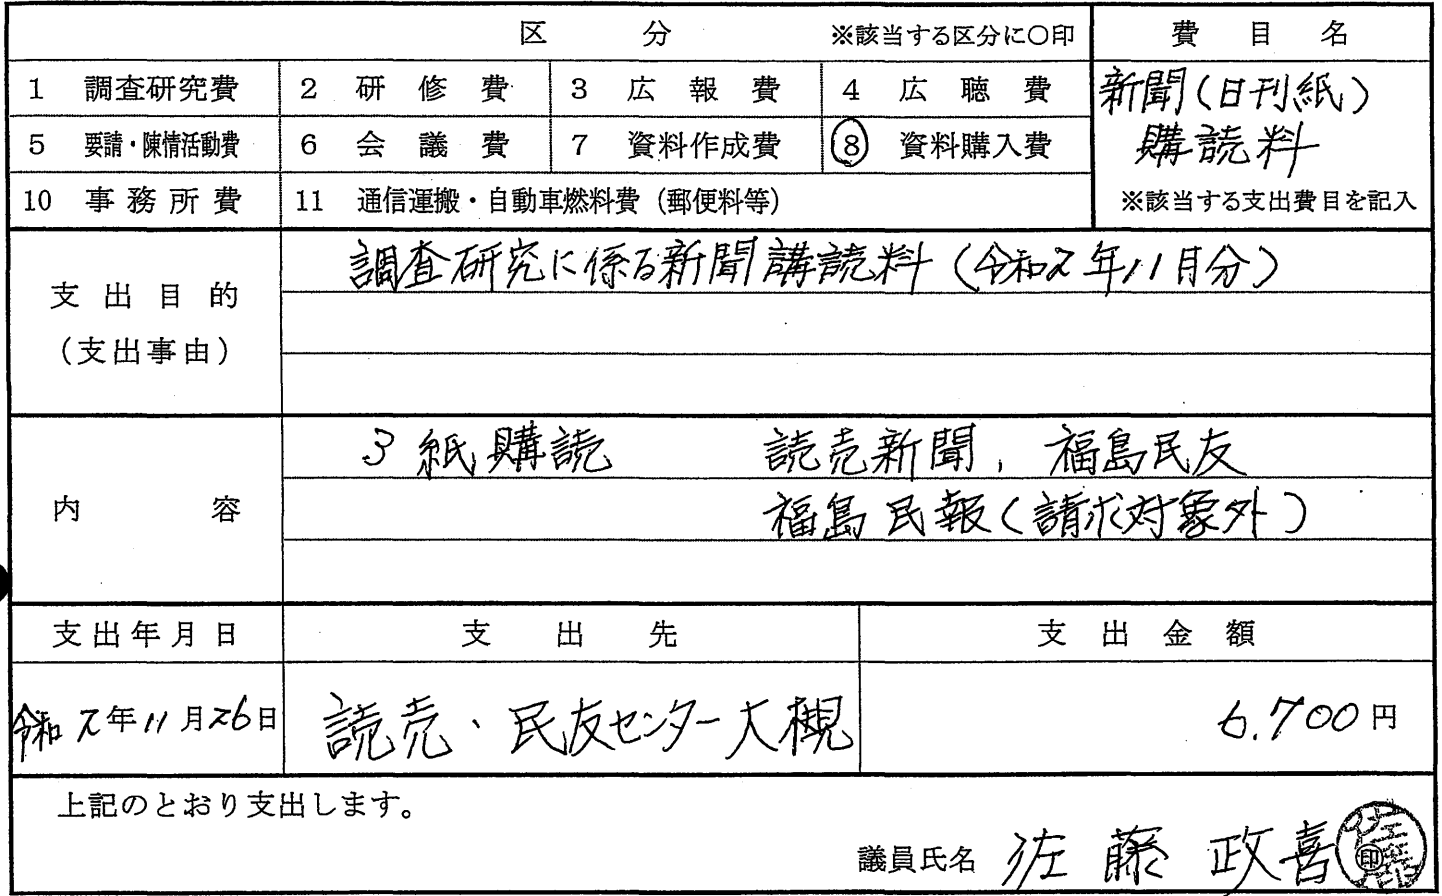 区 分 ※該当する区分に〇印 費 目 名
1 調査研究費 2 研 修 費 3 広 報 費 4 広 聴 費 新聞(日刊紙)
5 要請・陳情活動費 6 会 議 費 7 資料作成費 8 資料購入費 購読料
10 事 務 所 費 11 通信運搬・自動車燃料費(郵便料等) ※該当する支出費目を記入
支 出 目 的 調査研究に係る新聞講読料(令和2年11月分)
(支出事由)
3紙購読 読売新聞, 福島民友
内 容 福島民報(請求対象外)
支出年月日 支 出 先 支 出 金 額
令和2年11月26日 読売・民友センター大槻 6.700円
上記のとおり支出します。
議員氏名 佐藤 政喜 印